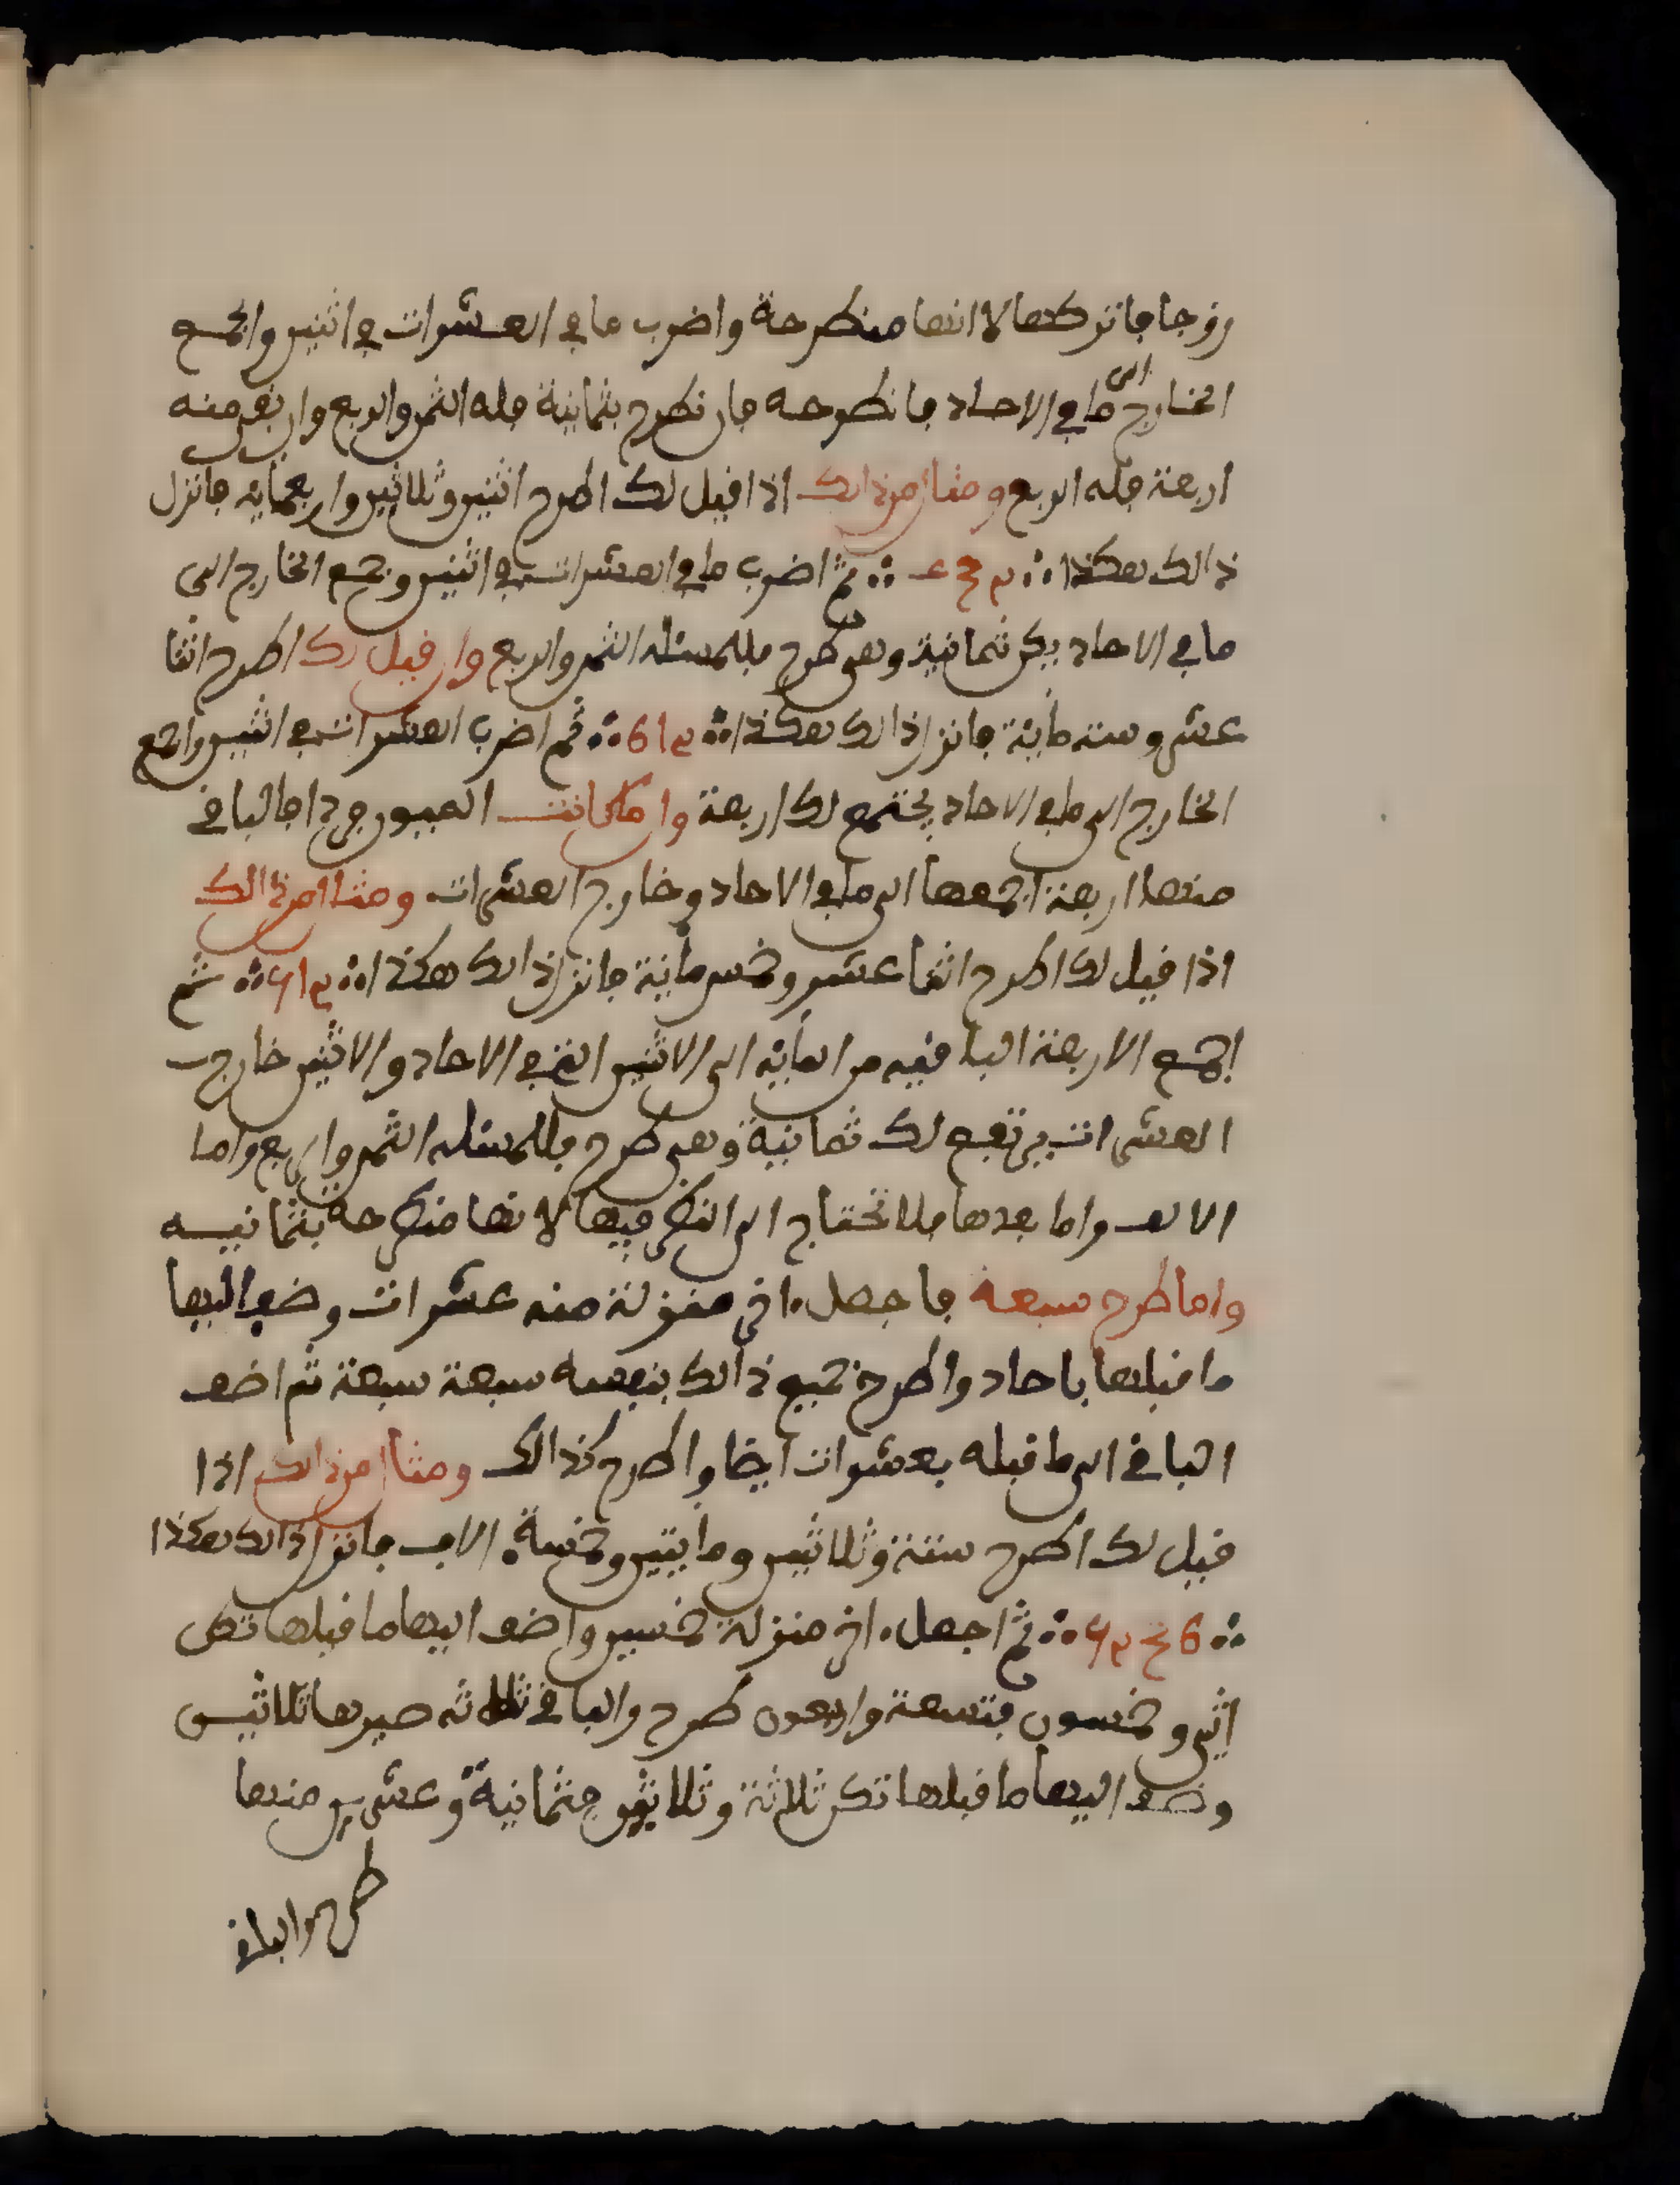 زوجا فاتركها لانها منطرحة واضرب ما في العشرات في اثنين واجمع
الخارج الى ما في الاحاد فانطرحه فان نطرح بثمانية فله الثمن والربع وان بقى منه
اربعة فله الربع ومثال من ذالك اذا قيل لك اطرح اثنين وثلاثين واربعماية فانزل
ذالك هكذا ثم اضرب ما في العشرات في اثنين وتجمع الخارج الى
ما في الاحاد يكن ثمانية وهي طرح فللمسئله الثمن والربع وان قيل لك اطرح اثنا
عشر وسته ماية فانزل ذالك هكذا ٢١6 ثم اضرب العشرات في اثنين واجمع
الخارج الى ما في الاحاد يجتمع لك اربعة وان كانت الميون فردا فالباقي
منها اربعة اجمعها الى ما في الاحاد وخارج العشرات ومثال من ذالك
اذا قيل لك اطرح اثنا عشر وخمس ماية فانزل ذالك هكذا ثم
اجمع الاربعة الباقيه من الماية الى الاثنين التي في الاحاد والاثنين خارج
العشرات يرتفع لك ثمانية وهي طرح فللمسئله الثمن والربع واما
الالف واما بعدها فلا تحتاج الى النظر فيها لانها منطرحة بثمانيه
واما طرح سبعة فاجعل اخر منزلة منه عشرات وضف اليها
ما قبلها باحاد واطرح جميع ذالك بنفسه سبعة سبعة ثم اضف
الباقي الى ما قبله بعشرات ايضا واطرح كذالك ومثال من ذالك اذا
قيل لك اطرح ستة وثلاثين ومايتين وخمسة الاف فانزل ذالك هكذا
ثم اجعل اخر منزلة خمسين واضف اليها ما قبلها تكن
اثنى وخمسون فتسعة واربعون طرح والباقي ثلاثه صيرها ثلاثين
وضف اليها ما قبلها تكن ثلاثة وثلاثون فثمانية وعشرين منها
طرح والباقي